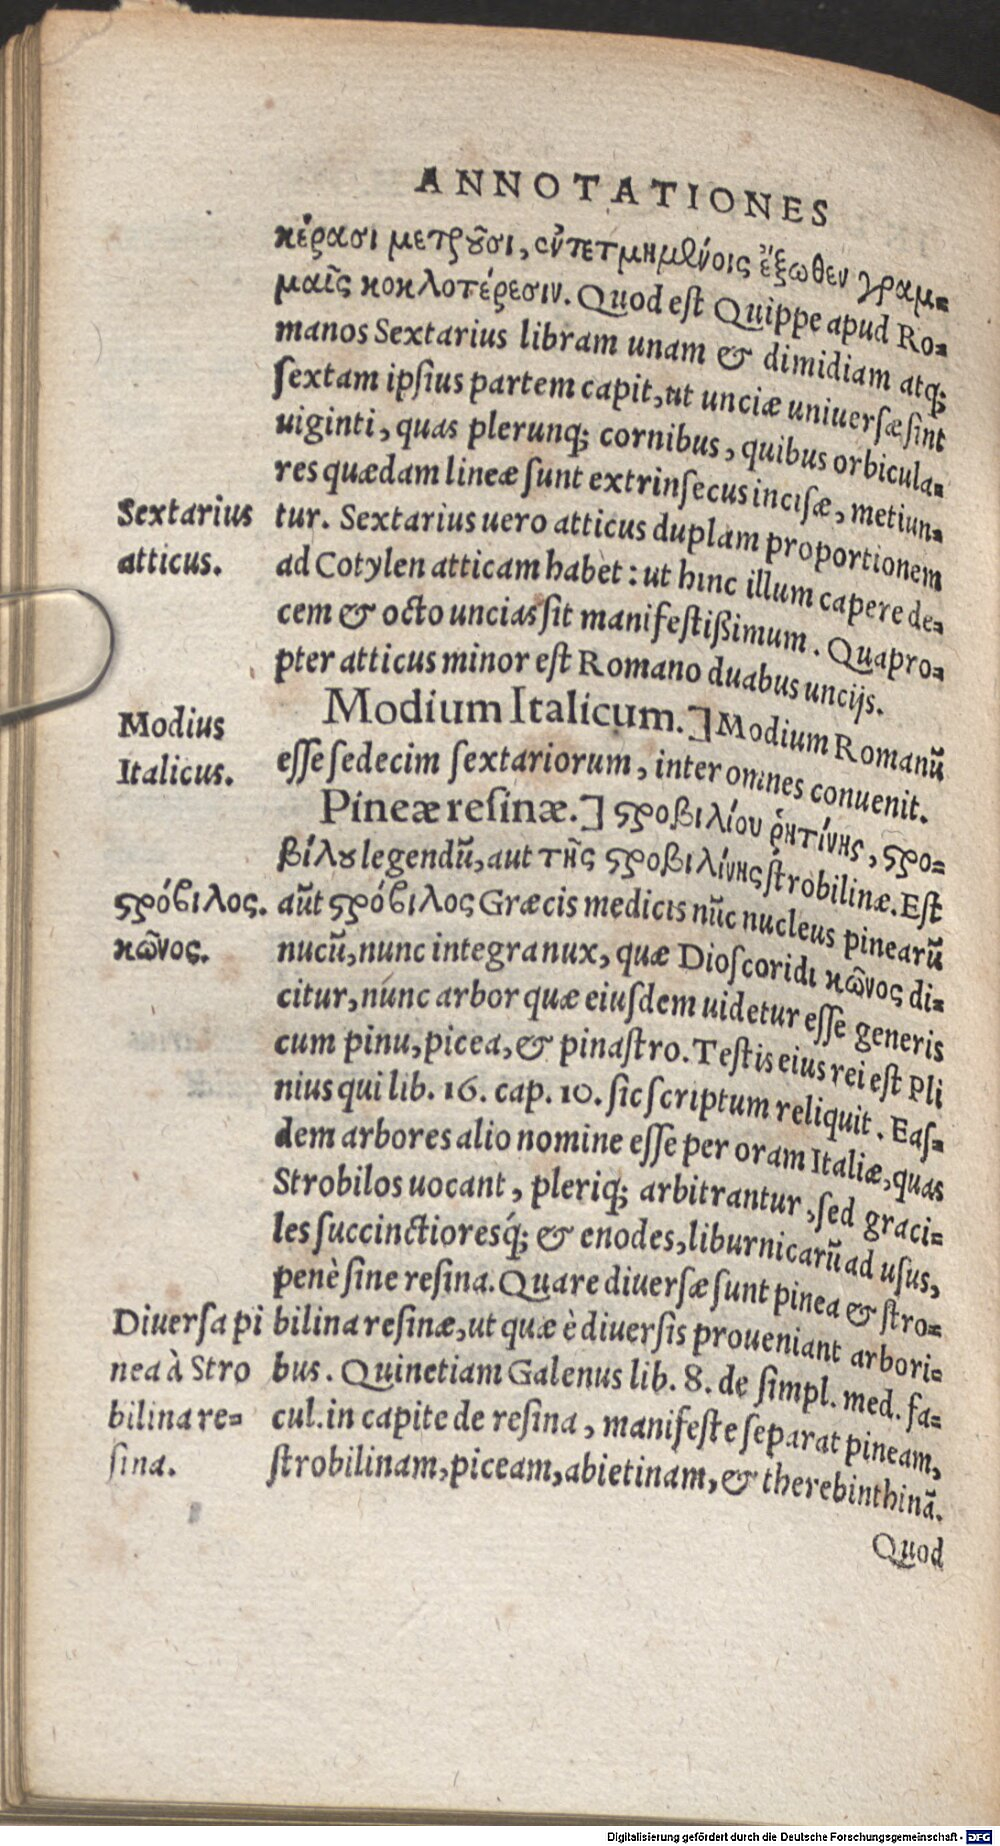 ANNOTATIONES
κέρασι μετρȣ͂σι, ἐντετμημένοις ἔξωθεν γραμ=
μαῖς κοκλοτέρεσιν. Quod est Quippe apud Ro=
manos Sextarius libram unam & dimidiam atq;
sextam ipsius partem capit, ut unciæ uniuersæ sint
uiginti, quas plerunq; cornibus, quibus orbicula=
res quædam lineæ sunt extrinsecus incisæ, metiun=
Sextarius
atticus.
tur. Sextarius uero atticus duplam proportionem
ad Cotylen atticam habet: ut hinc illum capere de=
cem & octo uncias sit manifestißimum. Quapro=
pter atticus minor est Romano duabus uncijs.
Modius
Italicus.
Modium Italicum.] Modium Romanū
esse sedecim sextariorum, inter omnes conuenit.
Pineæ resinæ.] ϛροβιλίου ῥητίνης, ϛρο=
βίλȣ legendū, aut τῆς ϛροβιλίνης strobilinæ. Est
ϛρόβιλος.
κῶνος.
aūt ϛρόβιλος Græcis medicis nūc nucleus pinearū
nucū, nunc integra nux, quæ Dioscoridi κῶνος di=
citur, nunc arbor quæ eiusdem uidetur esse generis
cum pinu, picea, & pinastro. Testis eius rei est Pli
nius qui lib. 16. cap. 10. sic scriptum reliquit. Eas=
dem arbores alio nomine esse per oram Italiæ, quas
Strobilos uocant, pleriq; arbitrantur, sed graci=
les succinctioresq́; & enodes, liburnicarū ad usus,
penè sine resina. Quare diuersæ sunt pinea & stro=
Diuersa pi
nea à Stro
bilina re=
sina.
bilina resinæ, ut quæ è diuersis proueniant arbori=
bus. Quinetiam Galenus lib. 8. de simpl. med. fa=
cul. in capite de resina, manifeste separat pineam,
strobilinam, piceam, abietinam, & therebinthinā.
Quod
Digitalisierung gefördert durch die Deutsche Forschungsgemeinschaft - DFG